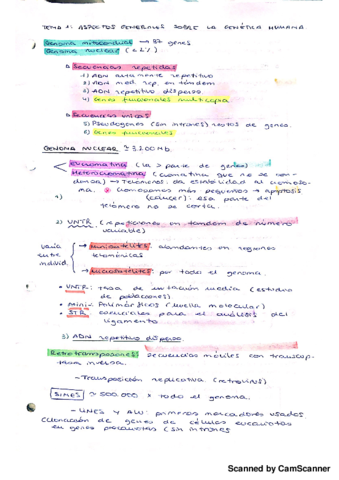 TEMA 1: ASPECTOS GENERALES SOBRE LA GENÉTICA HUMANA
Genoma mitocondrial → 37 genes
Genoma nuclear
a. Secuencias repetidas
1) ADN altamente repetitivo
2) ADN mod. rep. en tándem
3) ADN repetitivo disperso
4) Genes funcionales multicopia
b. Secuencias únicas
5) Pseudogenes (sin intrones) restos de genes.
6) Genes funcionales
GENOMA NUCLEAR ≈ 3200 Mb.
Eucromatina (la > parte de genes)
Heterocromatina (cromatina que no se
→ Telómeros: da estabilidad al cromoso-
ma. Cromosomas más pequeños → Apoptosis
1) (cáncer): esa parte del
telómero no se corta.
2) VNTR (repeticiones en tándem de número
variable)
varía
entre
individ.
→ Minisatélites: abundantes en regiones
teloméricas
→ Microsatélites: por todo el genoma.
• VNTR: tasa de mutación media (estudios
de poblaciones)
• Mini- Polimórficos (huella molecular)
• STR esenciales para el análisis del
ligamento
3) ADN repetitivo disperso.
Retrotransposones: secuencias móviles con transcrip-
tasa inversa.
- Transposición replicativa (retrovirus)
SINES ≈ 500.000 x todo el genoma.
- LINES Y ALU: primeros marcadores usados
(clonación de genes de células eucariotas
en genes procariotas (sin intrones
Scanned by CamScanner